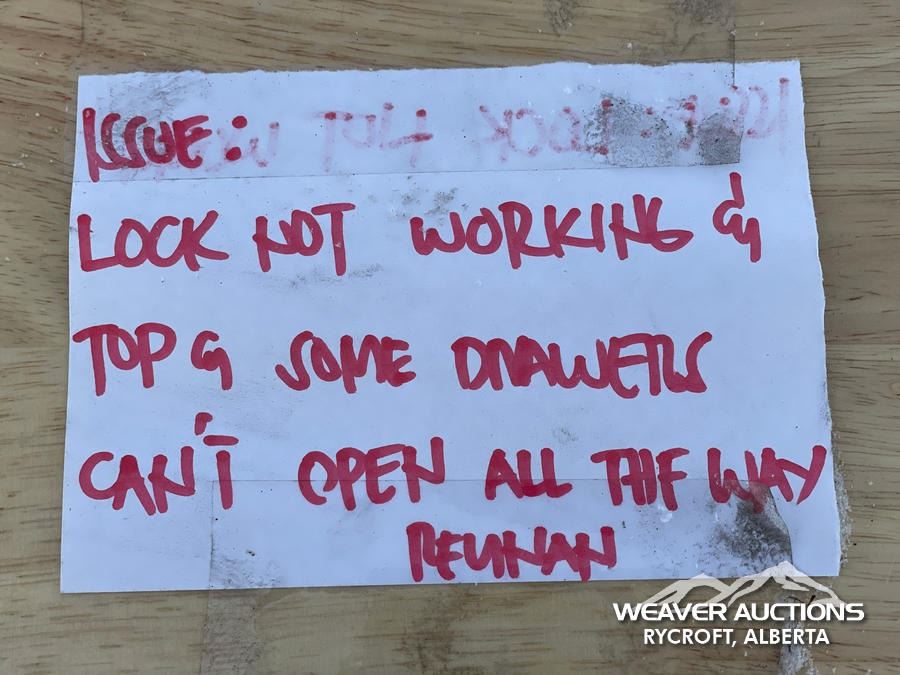 ISSUE:
LOCK NOT WORKING &
TOP & SOME DRAWERS
CAN'T OPEN ALL THE WAY
WEAVER AUCTIONS
RYCROFT, ALBERTA